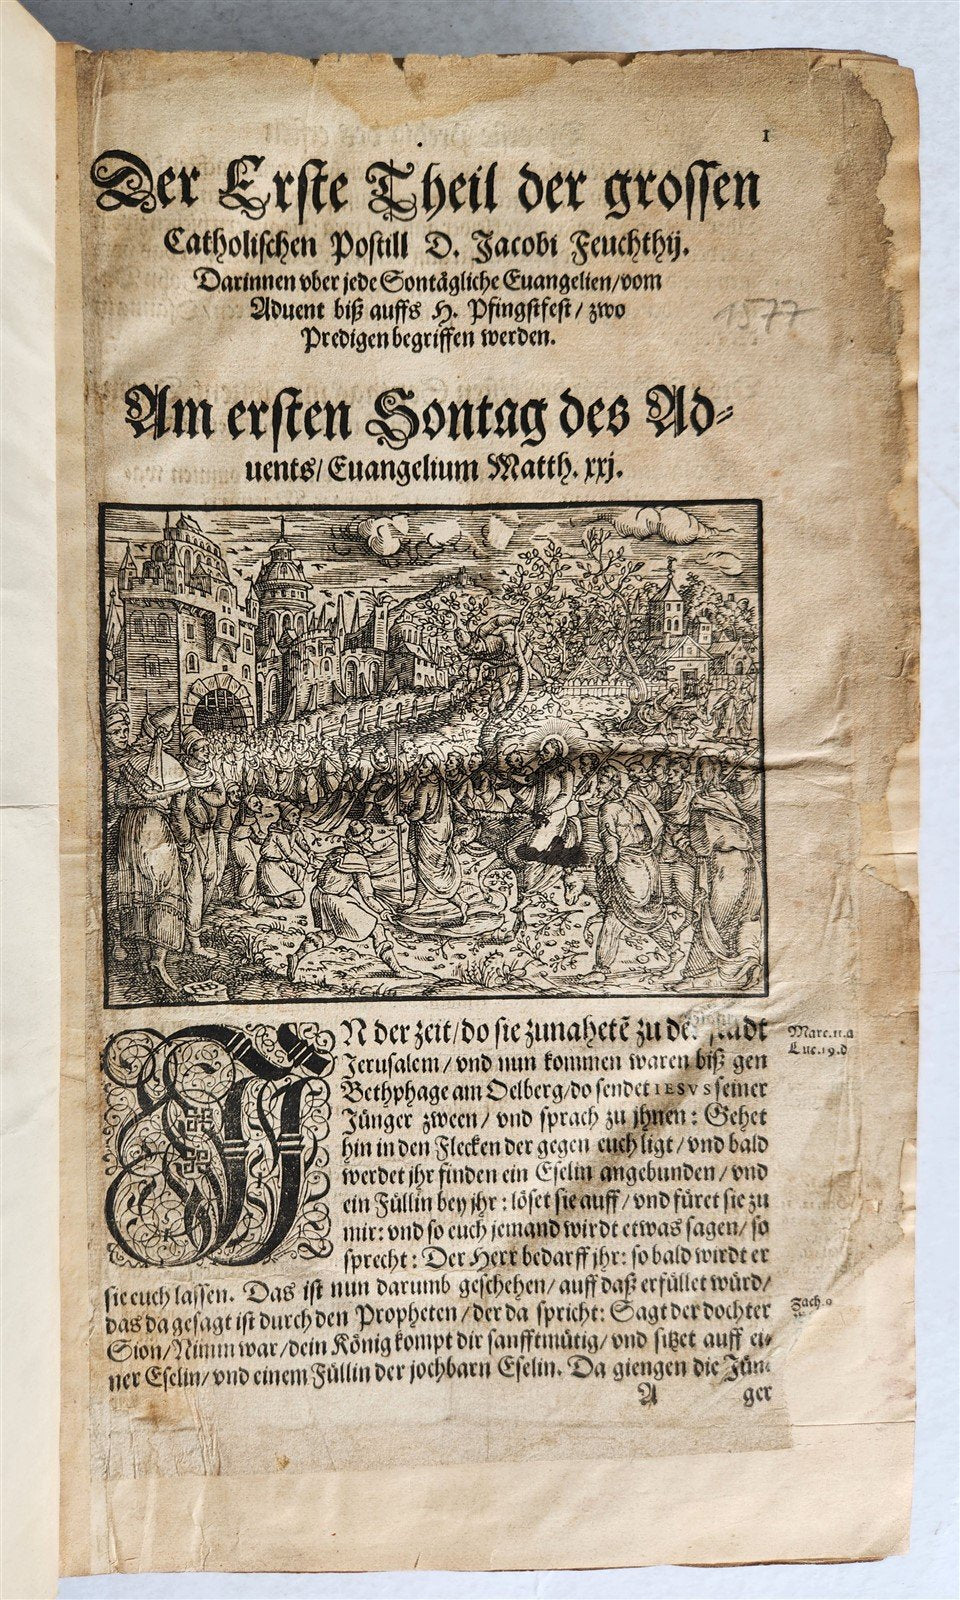 1
Der Erste Theil der grossen
Catholischen Postill D. Jacobi Feuchthij.
Darinnen vber jede Sontägliche Euangelien/vom
Aduent biß auffs H. Pfingstfest/ zwo
Predigen begriffen werden.
1577
Am ersten Sontag des Ad-
uents/ Euangelium Matth. xxj.
IN der zeit/do sie zunahetẽ zu der stadt
Marc.11.a
Jerusalem/ vnd nun kommen waren biß gen
Luc.19.d
Bethphage am Oelberg/do sendet IESVS seiner
Jünger zween/ vnd sprach zu jhnen: Gehet
hin in den Flecken der gegen euch ligt/vnd bald
werdet jhr finden ein Eselin angebunden/ vnd
ein Füllin bey jhr: löset sie auff/ vnd füret sie zu
mir: vnd so euch jemand wirdt etwas sagen/ so
sprecht: Der Herr bedarff jhr: so bald wirdt er
sie euch lassen. Das ist nun darumb geschehen/ auff daß erfüllet würd/
das da gesagt ist durch den Propheten/der da spricht: Sagt der dochter
Zach.9
Sion/Nimm war/dein König kompt dir sanfftmütig/ vnd sitzet auff ei-
ner Eselin/ vnd einem Füllin der jochbarn Eselin. Da giengen die Jün-
A ger